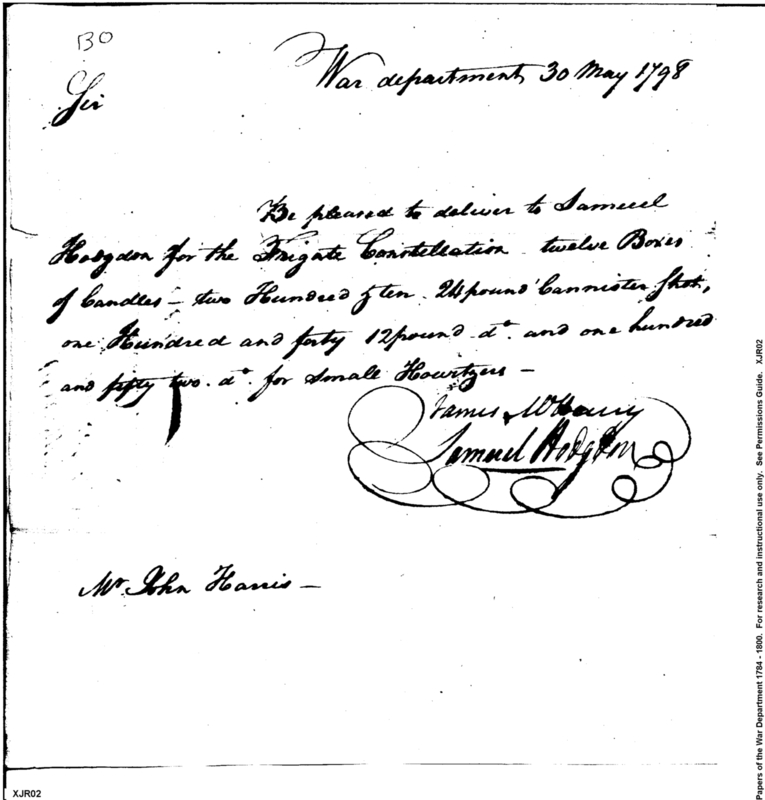 BO
War department, 30 May 1798
Sir
Be pleased to deliver to Samuel
Hodgdon for the Frigate Constellation twelve Boxes
of Candles – two Hundred & ten 24 pound Cannister Shot,
one Hundred and forty 12 pound do. and one hundred
and fifty two do. for small Howitzers –
James McHenry
Samuel Hodgdon
Mr John Harris –
XJR02
Papers of the War Department 1784 - 1800. For research and instructional use only. See Permissions Guide. XJR02